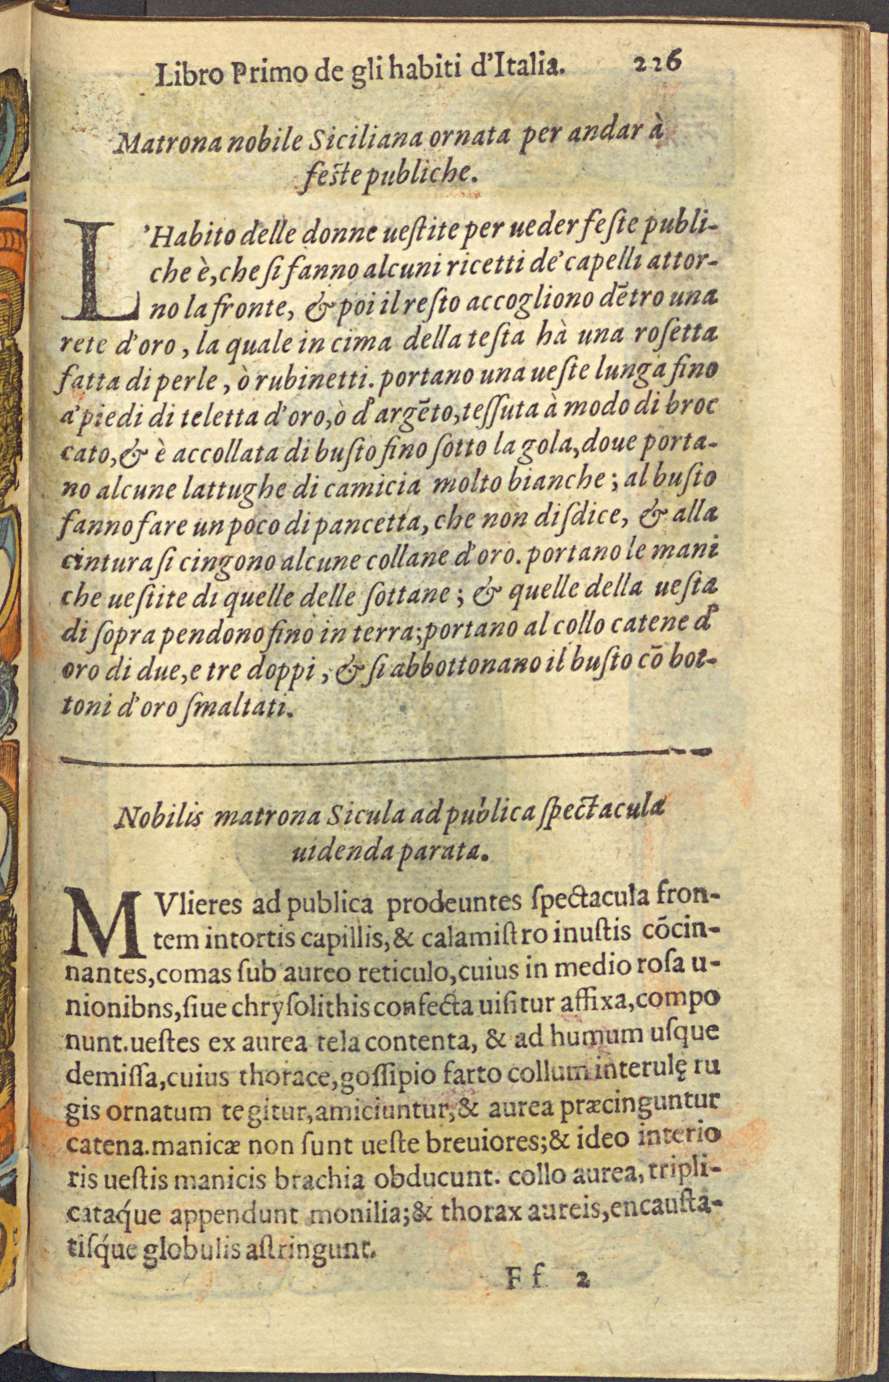 Libro Primo de gli habiti d'Italia. 226
Matrona nobile Siciliana ornata per andar à
feste publiche.
L'Habito delle donne uestite per ueder feste publi-
che è, che si fanno alcuni ricetti de' capelli attor-
no la fronte, & poi il resto accogliono dētro una
rete d'oro, la quale in cima della testa hà una rosetta
fatta di perle, ò rubinetti. portano una ueste lunga fino
a' piedi di teletta d'oro, ò d'argēto, tessuta à modo di broc
cato, & è accollata di busto fino sotto la gola, doue porta-
no alcune lattughe di camicia molto bianche; al busto
fanno fare un poco di pancetta, che non disdice, & alla
cintura si cingono alcune collane d'oro. portano le mani
che uestite di quelle delle sottane; & quelle della uesta
di sopra pendono fino in terra; portano al collo catene d'
oro di due, e tre doppi, & si abbottonano il busto cō bot-
toni d'oro smaltati.
Nobilis matrona Sicula ad publica spectacula
uidenda parata.
MVlieres ad publica prodeuntes spectacula fron-
tem intortis capillis, & calamistro inustis cōcin-
nantes, comas sub aureo reticulo, cuius in medio rosa u-
nionibns, siue chrysolithis confecta uisitur affixa, compo
nunt. uestes ex aurea tela contenta, & ad humum usque
demissa, cuius thorace, gossipio farto collum interulę ru
gis ornatum tegitur, amiciuntur, & aurea præcinguntur
catena. manicæ non sunt ueste breuiores; & ideo interio
ris uestis manicis brachia obducunt. collo aurea, tripli-
cataq́ue appendunt monilia; & thorax aureis, encausta-
tisq́ue globulis astringunt.
Ff 2